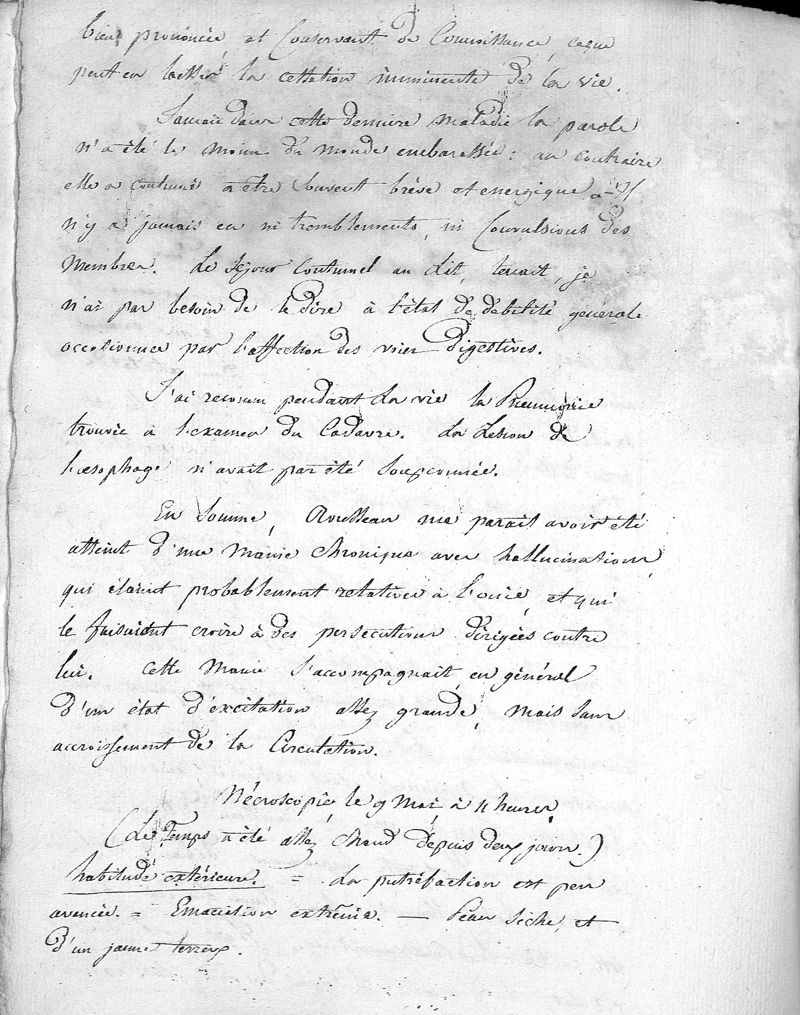 bien prononcée, et Conservant de Connaissance, ce que
peut en laisser la cessation imminente de la vie.
Jamais dans cette derniere maladie la parole
n'a été le moins du monde embarassée : au contraire
elle a continué a etre souvent brève et energique. Il
n'y a jamais eu ni tremblements, ni Convulsions des
membres. Le séjour continuel au lit, tenait, je
n'ai pas besoin de le dire à l'état de débilité générale
occasionnée par l'affection des voies digestives.
J'ai reconnu pendant la vie la Pneumonie
trouvée à l'examen du Cadavre. La Lésion de
l'œsophage n'avait pas été soupçonnée.
En somme, Rousseau me parait avoir été
atteint d'une manie chronique avec hallucinations,
qui étaient probablement relatives à l'ouie, et qui
le faisaient croire à des persecutions dirigées contre
lui. Cette manie s'accompagnait, en général
d'un état d'excitation assez grande, mais sans
accroissement de la Circulation.
Nécroscopie, le 9 mai, à 11 heures,
(Le Temps a été assez chaud depuis deux jours.)
habitude extérieure. = La putréfaction est peu
avancée. = Emaciation extrême. — Peau sèche, et
d'un jaune terreux.